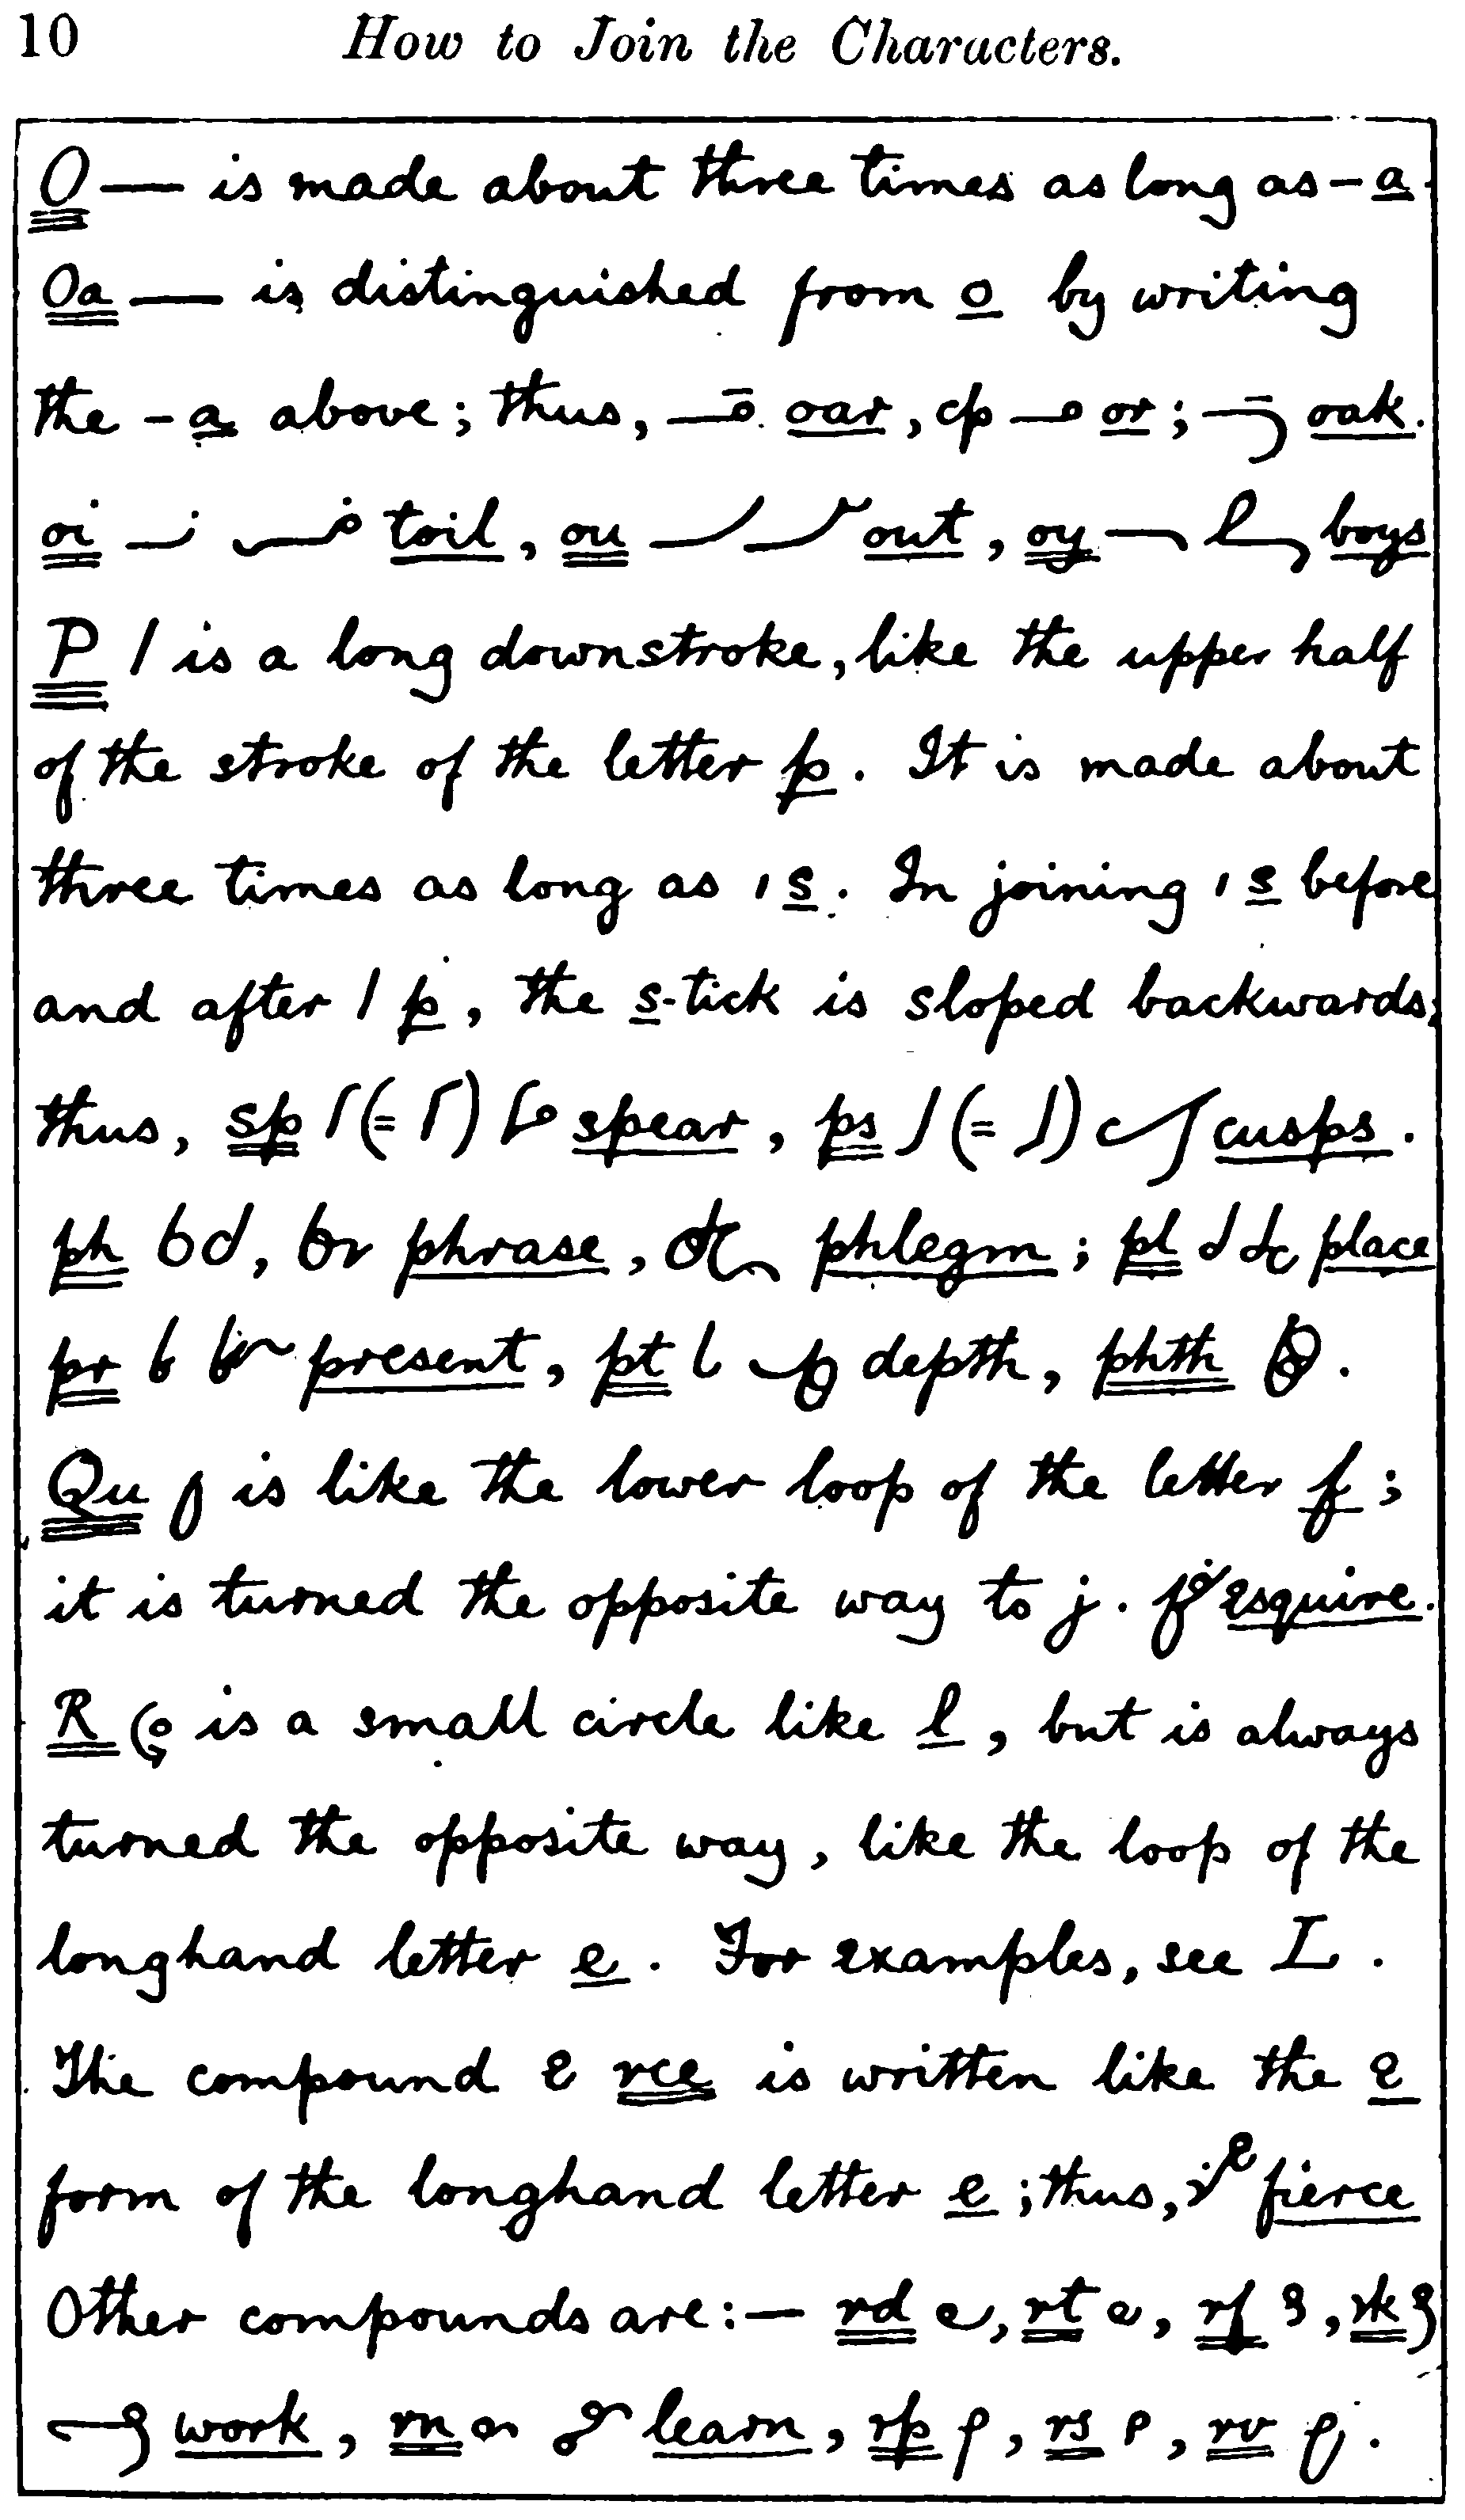 10 How to Join the Characters.
O — is made about three times as long as - a.
Oa — is distinguished from o by writing
the - a above; thus, oar, cp or; oak.
oi toil, ou out, oy boys
P / is a long downstroke, like the upper half
of the stroke of the letter p. It is made about
three times as long as s. In joining s before
and after / p, the s-tick is sloped backwards;
thus, sp (= ) spear, ps (= ) cusps.
ph phrase, phlegm; pl place
pr present, pt depth, phth .
Qu is like the lower loop of the letter f;
it is turned the opposite way to j. esquire.
R is a small circle like l, but is always
turned the opposite way, like the loop of the
longhand letter e. For examples, see L.
The compound rce is written like the e
form of the longhand letter e; thus, fierce
Other compounds are:— rd , rt , rf , rk
work, rn learn, rp , rs , rv .